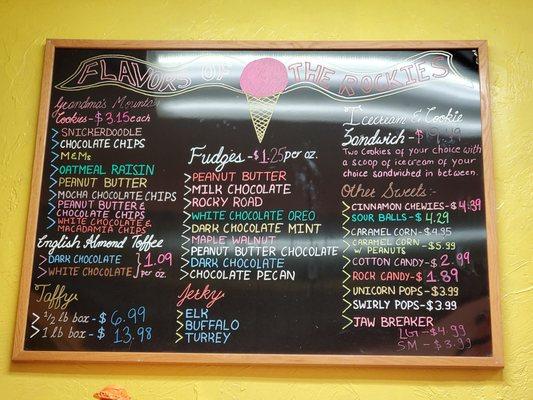 FLAVORS OF THE ROCKIES
Grandma's Mountain
Cookies - $3.15 each
SNICKERDOODLE
CHOCOLATE CHIPS
M&Ms
OATMEAL RAISIN
PEANUT BUTTER
MOCHA CHOCOLATE CHIPS
PEANUT BUTTER &
CHOCOLATE CHIPS
WHITE CHOCOLATE &
MACADAMIA CHIPS
English Almond Toffee
DARK CHOCOLATE
WHITE CHOCOLATE
} 1.09
per oz.
Taffy
1/2 lb box - $ 6.99
1 lb box - $ 13.98
Fudges - $1.25 per oz.
PEANUT BUTTER
MILK CHOCOLATE
ROCKY ROAD
WHITE CHOCOLATE OREO
DARK CHOCOLATE MINT
MAPLE WALNUT
PEANUT BUTTER CHOCOLATE
DARK CHOCOLATE
CHOCOLATE PECAN
Jerky
ELK
BUFFALO
TURKEY
Icecream & Cookie
Sandwich - $
Two cookies of your choice with
a scoop of icecream of your
choice sandwiched in between.
Other Sweets:-
CINNAMON CHEWIES - $4.39
SOUR BALLS - $ 4.29
CARAMEL CORN - $4.95
CARAMEL CORN - $5.99
W PEANUTS
COTTON CANDY - $ 2.99
ROCK CANDY - $ 1.89
UNICORN POPS - $3.99
SWIRLY POPS - $3.99
JAW BREAKER
LG - $4.99
SM - $3.99